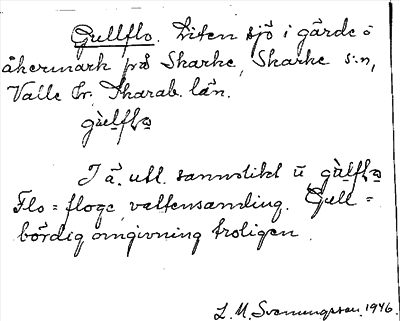 Gullflo. Liten sjö i gärde o
åkermark på Skarke, Skarke s:n,
Valle hr, Skarab. län.
gùl̥flω
I ä. utt. sannolikt u gùl̥flω
Flo = floge, vattensamling. Gull =
bördig omgivning troligen.
L. M. Svenungsson. 1946.